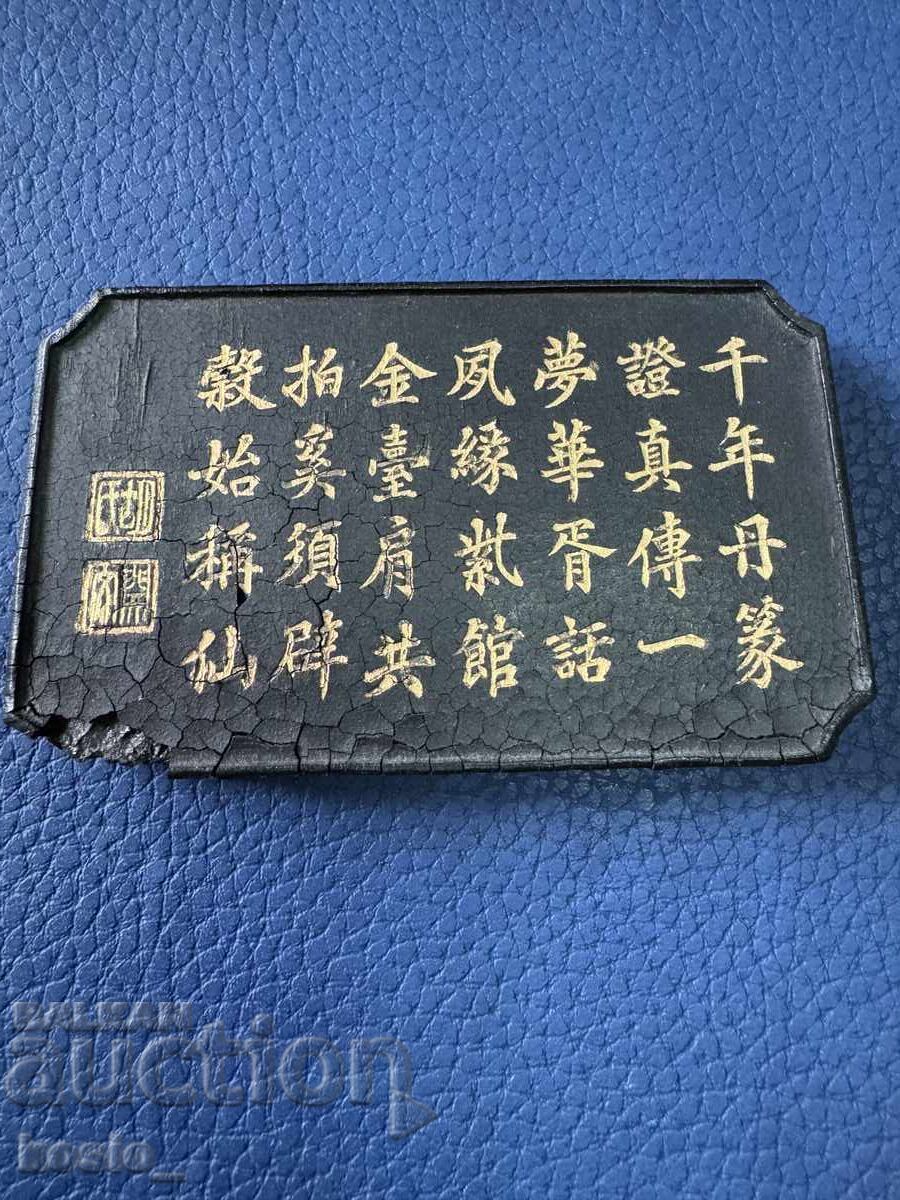 千年丹篆
證真傳一
夢華胥話
夙緣紫館
金臺肩共
拍奚須辟
穀始稱仙
BALKAN
auction
kosio_